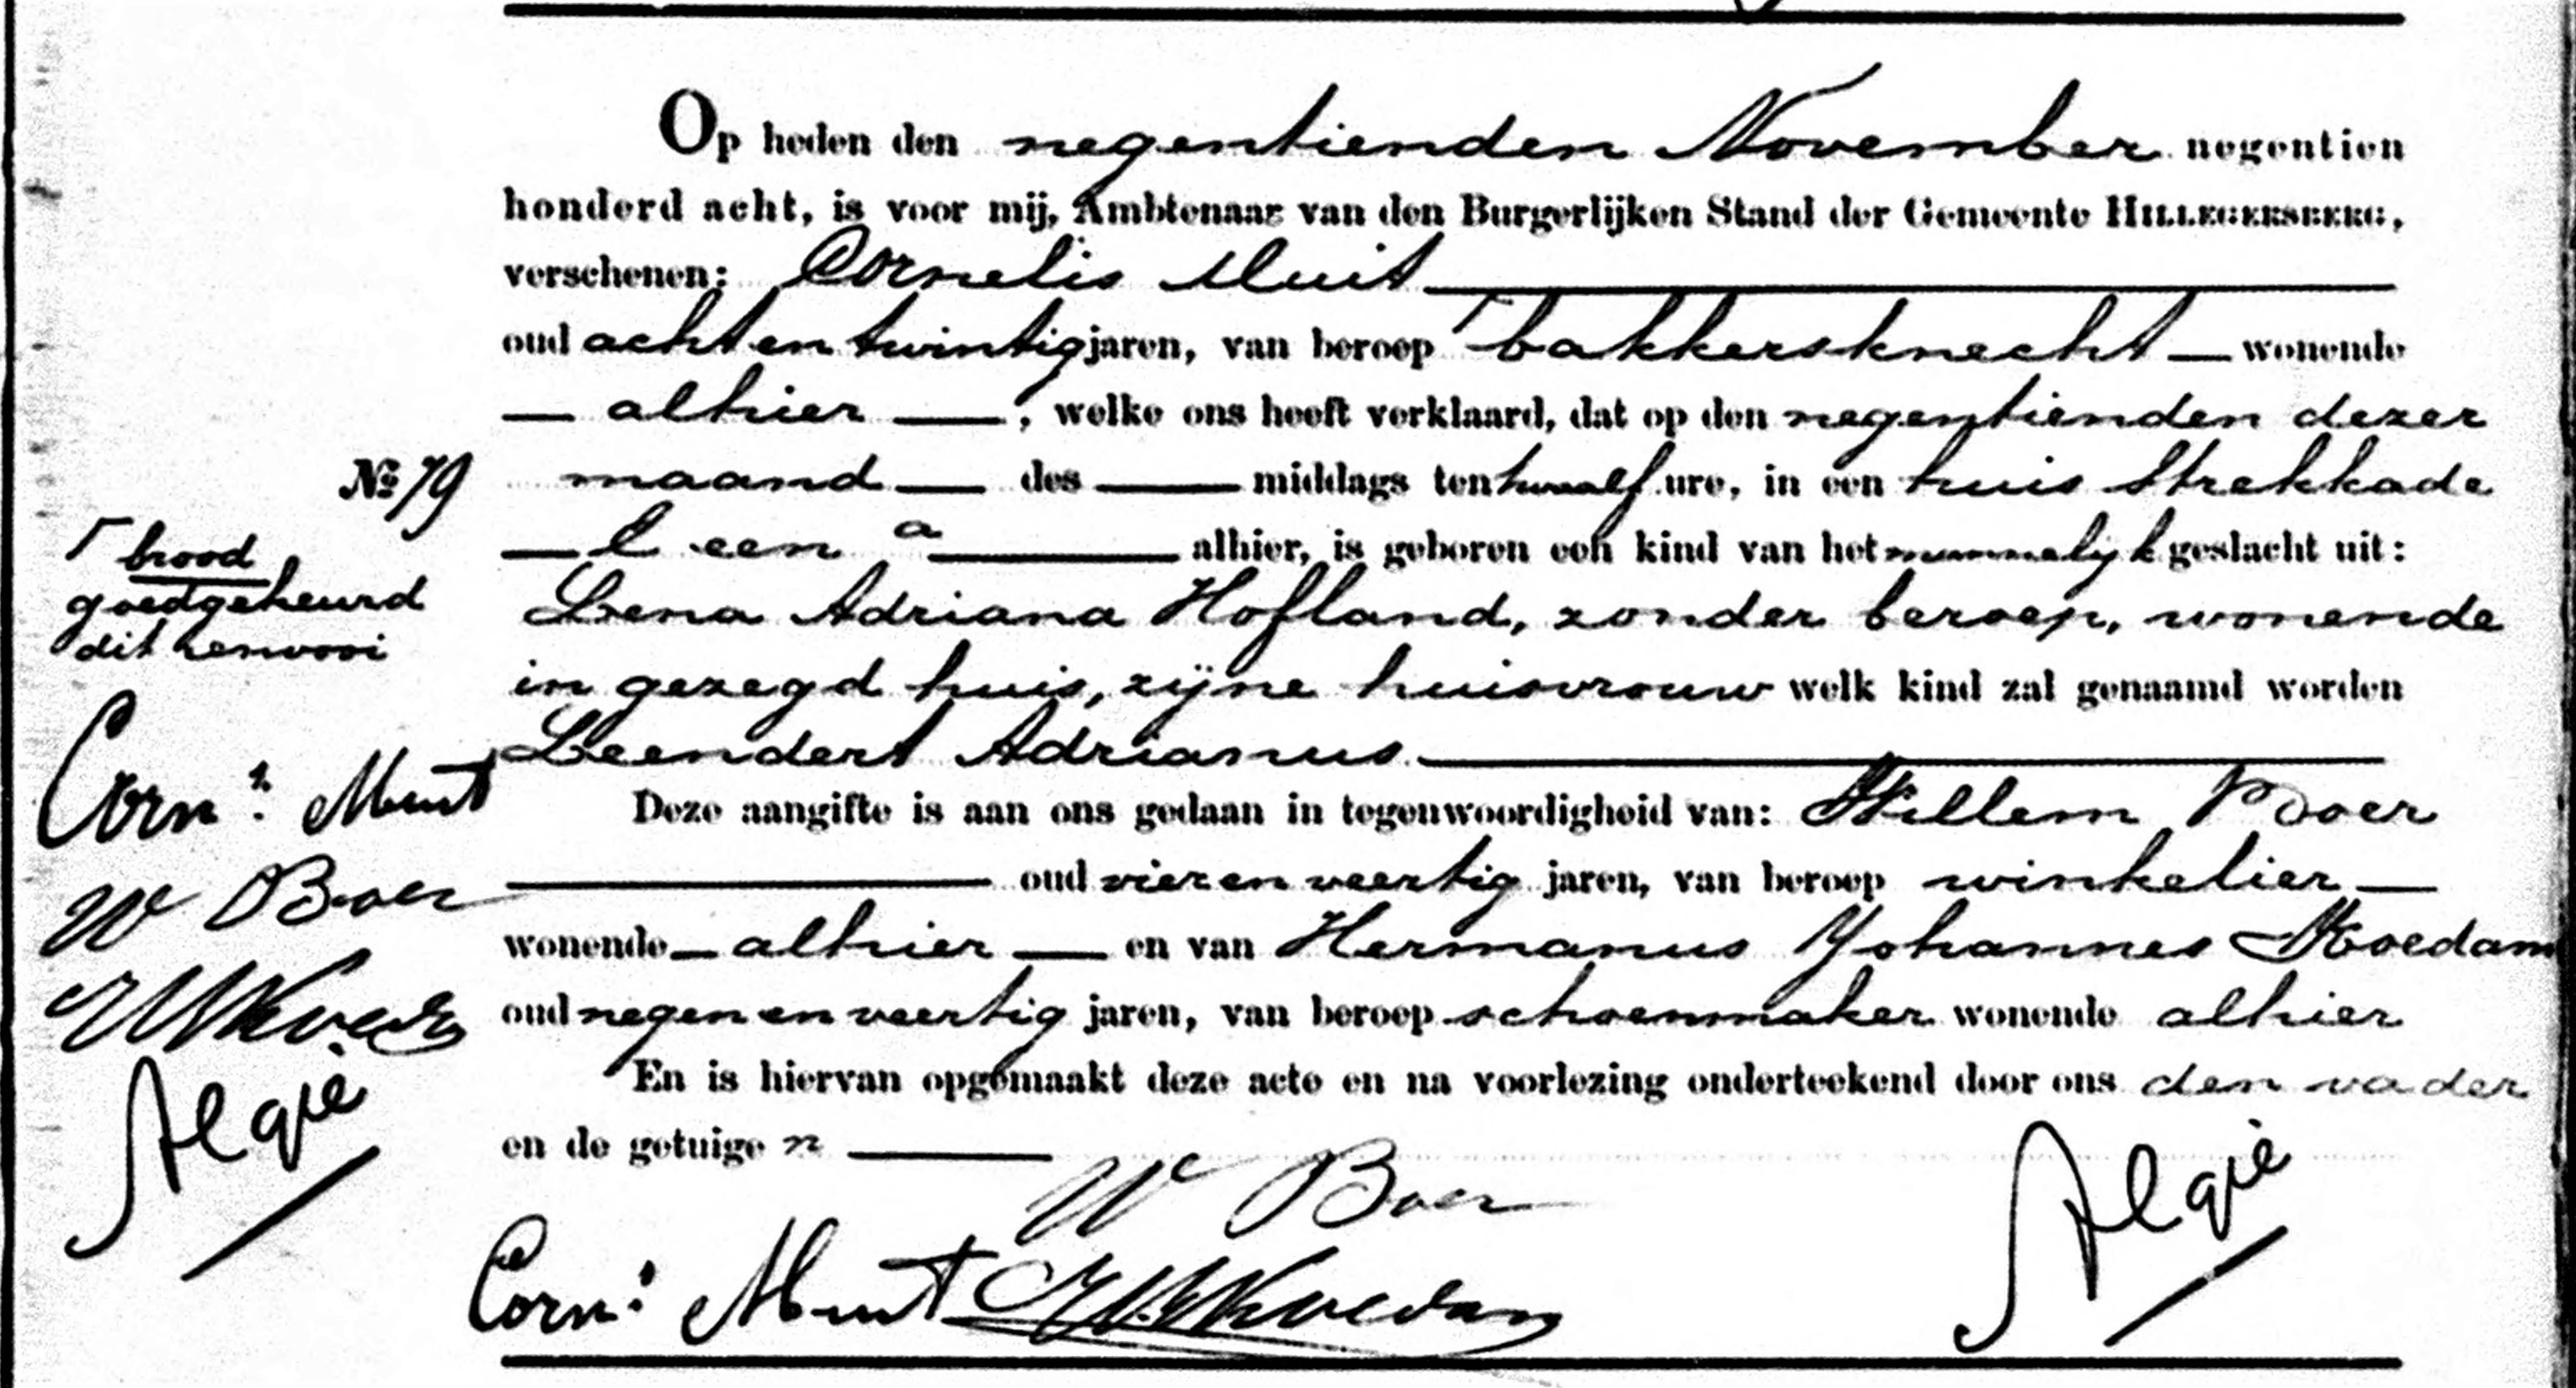 Op heden den negentienden November negentien
honderd acht, is voor mij, Ambtenaar van den Burgerlijken Stand der Gemeente HILLEGERSBERG,
verschenen: Cornelis Muit
oud acht en twintig jaren, van beroep ⌈bakkersknecht — wonende
— alhier —, welke ons heeft verklaard, dat op den negentienden dezer
maand — des — middags ten twaalf ure, in een huis Strekkade
— l een a — alhier, is geboren een kind van het mannelijk geslacht uit:
Lena Adriana Hofland, zonder beroep, wonende
in gezegd huis, zijne huisvrouw welk kind zal genaamd worden
Leendert Adrianus
Deze aangifte is aan ons gedaan in tegenwoordigheid van: Willem Boer
— oud vier en veertig jaren, van beroep winkelier —
wonende — alhier — en van Hermanus Johannes Koedam
oud negen en veertig jaren, van beroep schoenmaker wonende alhier
En is hiervan opgemaakt deze acte en na voorlezing onderteekend door ons den vader
en de getuige n —
W Boer
Corns Muit HJKoedam
Algie
No 79
⌈ brood
goedgekeurd
dit renvooi
Corns Muit
W Boer
HJKoedam
Algie